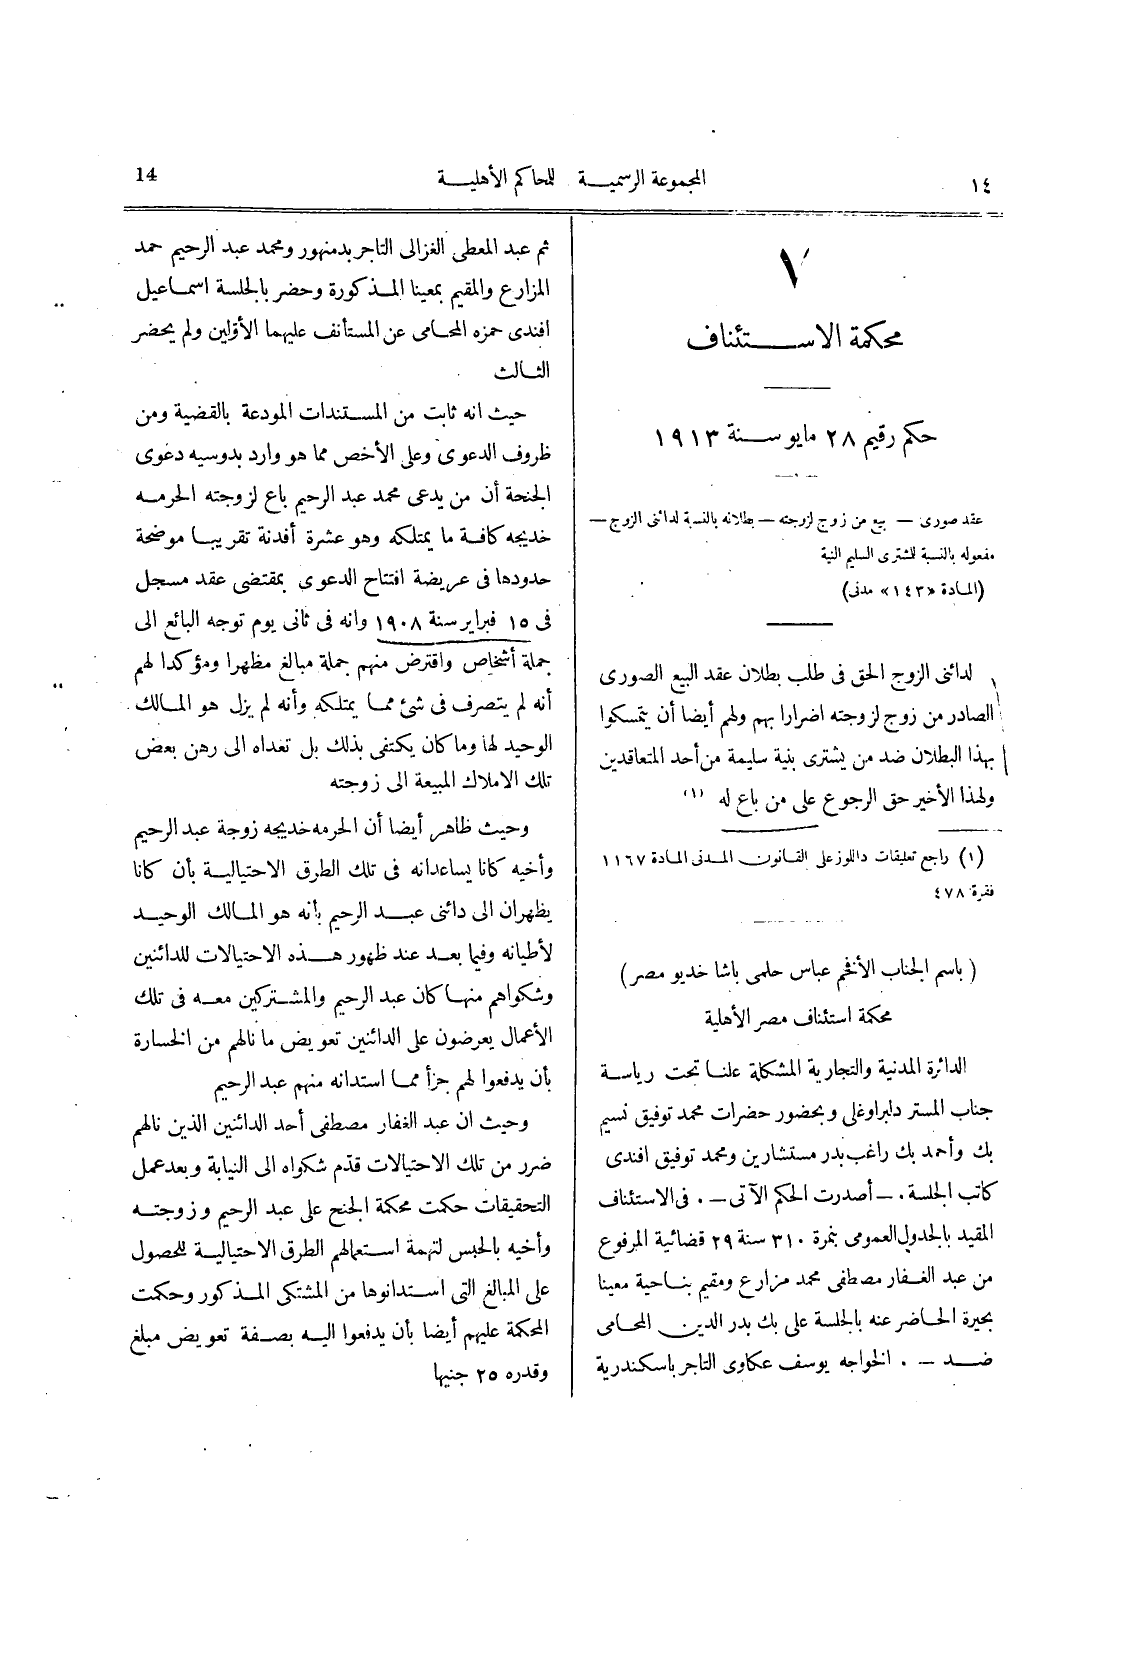 ١٤
المجموعة الرسمية للمحاكم الأهلية
14
٧
محكمة الاستئناف
حكم رقيم ٢٨ مايو سنة ١٩١٣
عقد صورى — بيع من زوج لزوجته — بطلانه بالنسبة لدائنى الزوج —
مفعوله بالنسبة للمشترى السليم النية
(المادة «١٤٣» مدنى)
لدائنى الزوج الحق فى طلب بطلان عقد البيع الصورى
الصادر من زوج لزوجته اضرارا بهم ولهم أيضا أن يتمسكوا
بهذا البطلان ضد من يشترى بنية سليمة من أحد المتعاقدين
ولهذا الأخير حق الرجوع على من باع له (١)
(١) راجع تعليقات داللوز على القانون المدنى المادة ١١٦٧
فقرة ٤٧٨
( باسم الجناب الأفخم عباس حلمى باشا خديو مصر )
محكمة استئناف مصر الأهلية
الدائرة المدنية والتجارية المشكلة علنا تحت رياسة
جناب المستر دلبراوغلى وبحضور حضرات محمد توفيق نسيم
بك وأحمد بك راغب بدر مستشارين ومحمد توفيق افندى
كاتب الجلسة . — أصدرت الحكم الآتى — . فى الاستئناف
المقيد بالجدول العمومى بنمرة ٣١٠ سنة ٢٩ قضائية المرفوع
من عبد الغفار مصطفى محمد مزارع ومقيم بناحية معينا
بحيرة الحاضر عنه بالجلسة على بك بدر الدين المحامى
ضد — . الخواجه يوسف عكاوى التاجر باسكندرية
ثم عبد المعطى الغزالى التاجر بدمنهور ومحمد عبد الرحيم حمد
المزارع والمقيم بمعينا المذكورة وحضر بالجلسة اسماعيل
افندى حمزه المحامى عن المستأنف عليهما الأولين ولم يحضر
الثالث
حيث انه ثابت من المستندات المودعة بالقضية ومن
ظروف الدعوى وعلى الأخص مما هو وارد بدوسيه دعوى
الجنحة أن من يدعى محمد عبد الرحيم باع لزوجته الحرمه
خديجه كافة ما يمتلكه وهو عشرة أفدنة تقريبا موضحة
حدودها فى عريضة افتتاح الدعوى بمقتضى عقد مسجل
فى ١٥ فبراير سنة ١٩٠٨ وانه فى ثانى يوم توجه البائع الى
جملة أشخاص واقترض منهم جملة مبالغ مظهرا ومؤكدا لهم
أنه لم يتصرف فى شئ مما يمتلكه وأنه لم يزل هو المالك
الوحيد لها وما كان يكتفى بذلك بل تعداه الى رهن بعض
تلك الاملاك المبيعة الى زوجته
وحيث ظاهر أيضا أن الحرمه خديجه زوجة عبد الرحيم
وأخيه كانا يساعدانه فى تلك الطرق الاحتيالية بأن كانا
يظهران الى دائنى عبد الرحيم بأنه هو المالك الوحيد
لأطيانه وفيما بعد عند ظهور هذه الاحتيالات للدائنين
وشكواهم منها كان عبد الرحيم والمشتركين معه فى تلك
الأعمال يعرضون على الدائنين تعويض ما نالهم من الخسارة
بأن يدفعوا لهم جزأ مما استدانه منهم عبد الرحيم
وحيث ان عبد الغفار مصطفى أحد الدائنين الذين نالهم
ضرر من تلك الاحتيالات قدّم شكواه الى النيابة وبعد عمل
التحقيقات حكمت محكمة الجنح على عبد الرحيم وزوجته
وأخيه بالحبس لتهمة استعمالهم الطرق الاحتيالية للحصول
على المبالغ التى استدانوها من المشتكى المذكور وحكمت
المحكمة عليهم أيضا بأن يدفعوا اليه بصفة تعويض مبلغ
وقدره ٢٥ جنيها